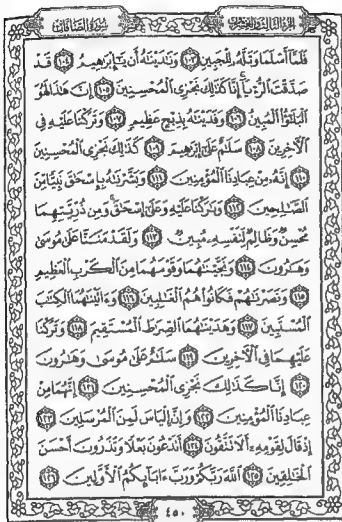 الجزء الثالث والعشرون سورة الصافات
فَلَمَّآ أَسْلَمَا وَتَلَّهُۥ لِلْجَبِينِ ١٠٣ وَنَـٰدَيْنَـٰهُ أَن يَـٰٓإِبْرَٰهِيمُ ١٠٤ قَدْ
صَدَّقْتَ ٱلرُّءْيَآ ۚ إِنَّا كَذَٰلِكَ نَجْزِى ٱلْمُحْسِنِينَ ١٠٥ إِنَّ هَـٰذَا لَهُوَ
ٱلْبَلَـٰٓؤُا۟ ٱلْمُبِينُ ١٠٦ وَفَدَيْنَـٰهُ بِذِبْحٍ عَظِيمٍ ١٠٧ وَتَرَكْنَا عَلَيْهِ فِى
ٱلْـَٔاخِرِينَ ١٠٨ سَلَـٰمٌ عَلَىٰٓ إِبْرَٰهِيمَ ١٠٩ كَذَٰلِكَ نَجْزِى ٱلْمُحْسِنِينَ
١١٠ إِنَّهُۥ مِنْ عِبَادِنَا ٱلْمُؤْمِنِينَ ١١١ وَبَشَّرْنَـٰهُ بِإِسْحَـٰقَ نَبِيًّا مِّنَ
ٱلصَّـٰلِحِينَ ١١٢ وَبَـٰرَكْنَا عَلَيْهِ وَعَلَىٰٓ إِسْحَـٰقَ ۚ وَمِن ذُرِّيَّتِهِمَا
مُحْسِنٌ وَظَالِمٌ لِّنَفْسِهِۦ مُبِينٌ ١١٣ وَلَقَدْ مَنَنَّا عَلَىٰ مُوسَىٰ
وَهَـٰرُونَ ١١٤ وَنَجَّيْنَـٰهُمَا وَقَوْمَهُمَا مِنَ ٱلْكَرْبِ ٱلْعَظِيمِ
١١٥ وَنَصَرْنَـٰهُمْ فَكَانُوا۟ هُمُ ٱلْغَـٰلِبِينَ ١١٦ وَءَاتَيْنَـٰهُمَا ٱلْكِتَـٰبَ
ٱلْمُسْتَبِينَ ١١٧ وَهَدَيْنَـٰهُمَا ٱلصِّرَٰطَ ٱلْمُسْتَقِيمَ ١١٨ وَتَرَكْنَا
عَلَيْهِمَا فِى ٱلْـَٔاخِرِينَ ١١٩ سَلَـٰمٌ عَلَىٰ مُوسَىٰ وَهَـٰرُونَ
١٢٠ إِنَّا كَذَٰلِكَ نَجْزِى ٱلْمُحْسِنِينَ ١٢١ إِنَّهُمَا مِنْ
عِبَادِنَا ٱلْمُؤْمِنِينَ ١٢٢ وَإِنَّ إِلْيَاسَ لَمِنَ ٱلْمُرْسَلِينَ ١٢٣
إِذْ قَالَ لِقَوْمِهِۦٓ أَلَا تَتَّقُونَ ١٢٤ أَتَدْعُونَ بَعْلًا وَتَذَرُونَ أَحْسَنَ
ٱلْخَـٰلِقِينَ ١٢٥ ٱللَّهَ رَبَّكُمْ وَرَبَّ ءَابَآئِكُمُ ٱلْأَوَّلِينَ ١٢٦
٤٥٠